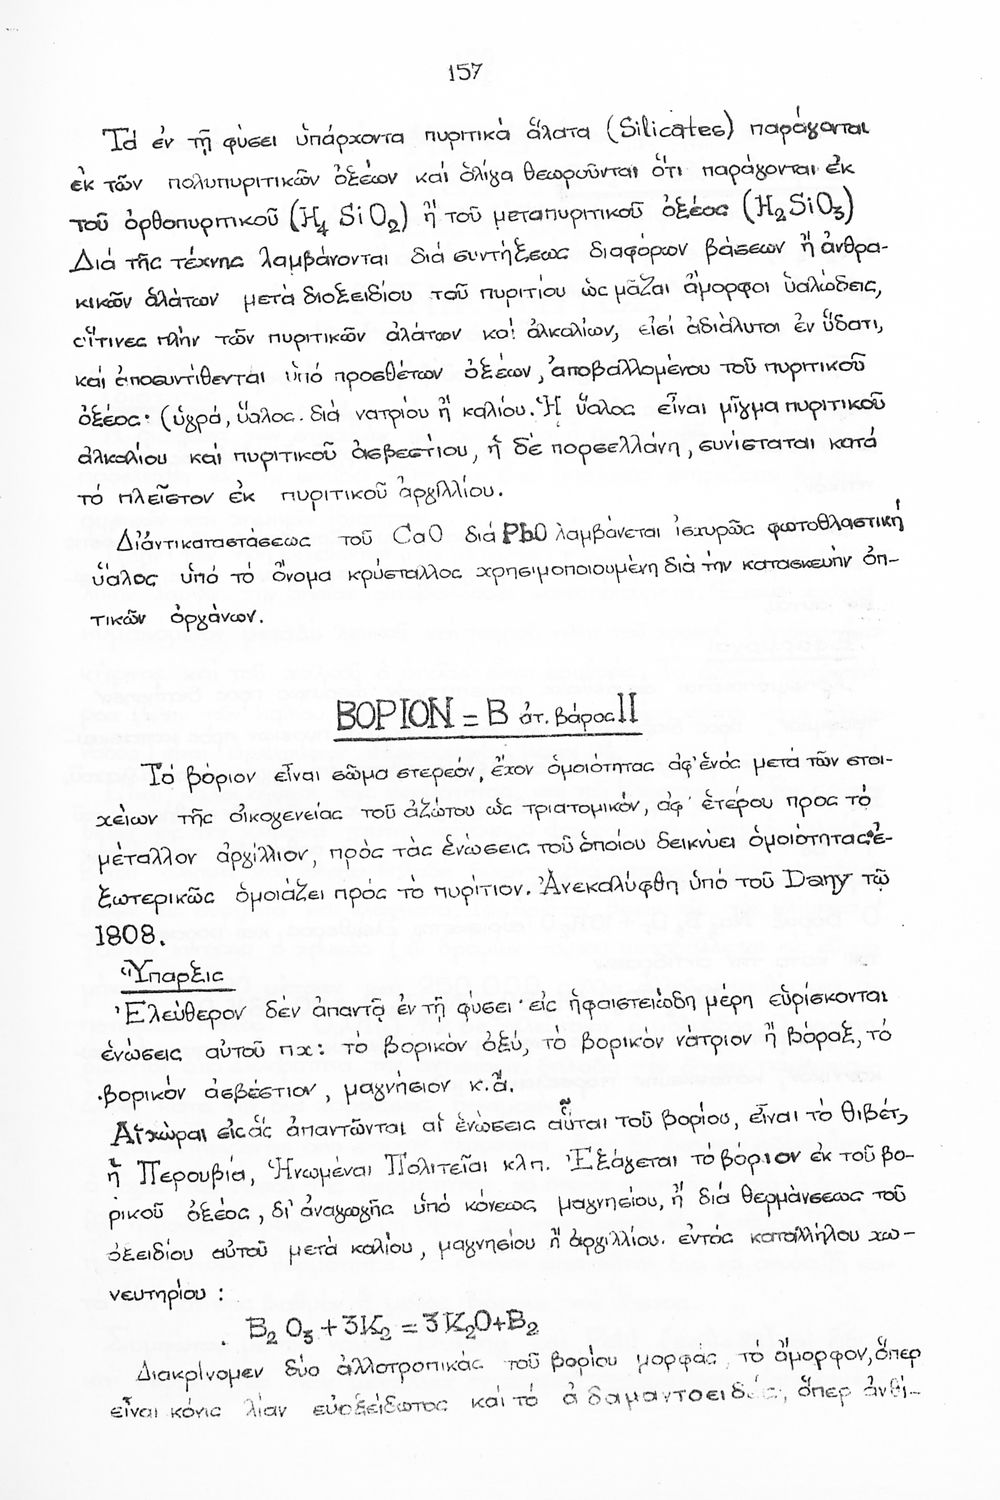 157
Τά ἐν τῇ φύσει ὑπάρχοντα πυριτικά ἅλατα (Silicates) παράγονται
ἐκ τῶν πολυπυριτικῶν ὀξέων καί ὀλίγα θεωροῦνται ὅτι παράγονται ἐκ
τοῦ ὀρθοπυριτικοῦ (H4 SiO2) ἤ τοῦ μεταπυριτικοῦ ὀξέος (H2SiO3)
Διά τῆς τέχνης λαμβάνονται διά συντήξεως διαφόρων βάσεων ἤ ἀνθρα-
κικῶν ἁλάτων μετὰ διοξειδίου τοῦ πυριτίου ὡς μᾶζαι ἄμορφοι ὑαλώδεις,
αἵτινες πλήν τῶν πυριτικῶν ἁλάτων καί ἀλκαλίων, εἰσί ἀδιάλυτοι ἐν ὕδατι,
καί ἀποσυντίθενται ὑπό προσθέτων ὀξέων, ἀποβαλλομένου τοῦ πυριτικοῦ
ὀξέος· (ὑγρά, ὕαλος. διά νατρίου ἤ καλίου. Ἡ ὕαλος εἶναι μῖγμα πυριτικοῦ
ἀλκαλίου καί πυριτικοῦ ἀσβεστίου, ἡ δέ πορσελλάνη, συνίσταται κατά
τό πλεῖστον ἐκ πυριτικοῦ ἀργιλλίου.
Δι'ἀντικαταστάσεως τοῦ CaO διά PbO λαμβάνεται ἰσχυρῶς φωτοθλαστική
ὕαλος ὑπό τό ὄνομα κρύσταλλος χρησιμοποιουμένη διά τήν κατασκευήν ὀπ-
τικῶν ὀργάνων.
ΒΟΡΙΟΝ = Β ἀτ. βάρος 11
Τό βόριον εἶναι σῶμα στερεόν, ἔχον ὁμοιότητας ἀφ' ἑνός μετά τῶν στοι-
χείων τῆς οἰκογενείας τοῦ ἀζώτου ὡς τριατομικόν, ἀφ' ἑτέρου προς τό
μέταλλον ἀργίλλιον, πρός τάς ἑνώσεις τοῦ ὁποίου δεικνύει ὁμοιότητας·ἐ-
ξωτερικῶς ὁμοιάζει πρός τό πυρίτιον. Ἀνεκαλύφθη ὑπό τοῦ Dany τῷ
1808.
Ὕπαρξις
Ἐλεύθερον δέν ἀπαντᾷ ἐν τῇ φύσει· εἰς ἡφαιστειώδη μέρη εὑρίσκονται
ἑνώσεις αὐτοῦ πχ: τό βορικόν ὀξύ, τό βορικόν νάτριον ἤ βόραξ, τό
βορικόν ἀσβέστιον, μαγνήσιον κ.ἄ.
Αἱ χῶραι εἰς ἅς ἀπαντῶνται αἱ ἑνώσεις αὗται τοῦ βορίου, εἶναι τό Θιβέτ,
ἡ Περουβία, Ἡνωμέναι Πολιτεῖαι κλπ. Ἐξάγεται τό βόριον ἐκ τοῦ βο-
ρικοῦ ὀξέος, δι' ἀναγωγῆς ὑπό κόνεως μαγνησίου, ἤ διά θερμάνσεως τοῦ
ὀξειδίου αὐτοῦ μετά καλίου, μαγνησίου ἤ ἀργιλλίου. ἐντός καταλλήλου χω-
νευτηρίου :
B2 O3 + 3K2 = 3 K2O+B2
Διακρίνομεν δύο ἀλλοτροπικάς τοῦ βορίου μορφάς, τό ἄμορφον, ὅπερ
εἶναι κόνις λίαν εὐοξείδωτος καί τό ἀδαμαντοειδές, ὅπερ ἀνθί-